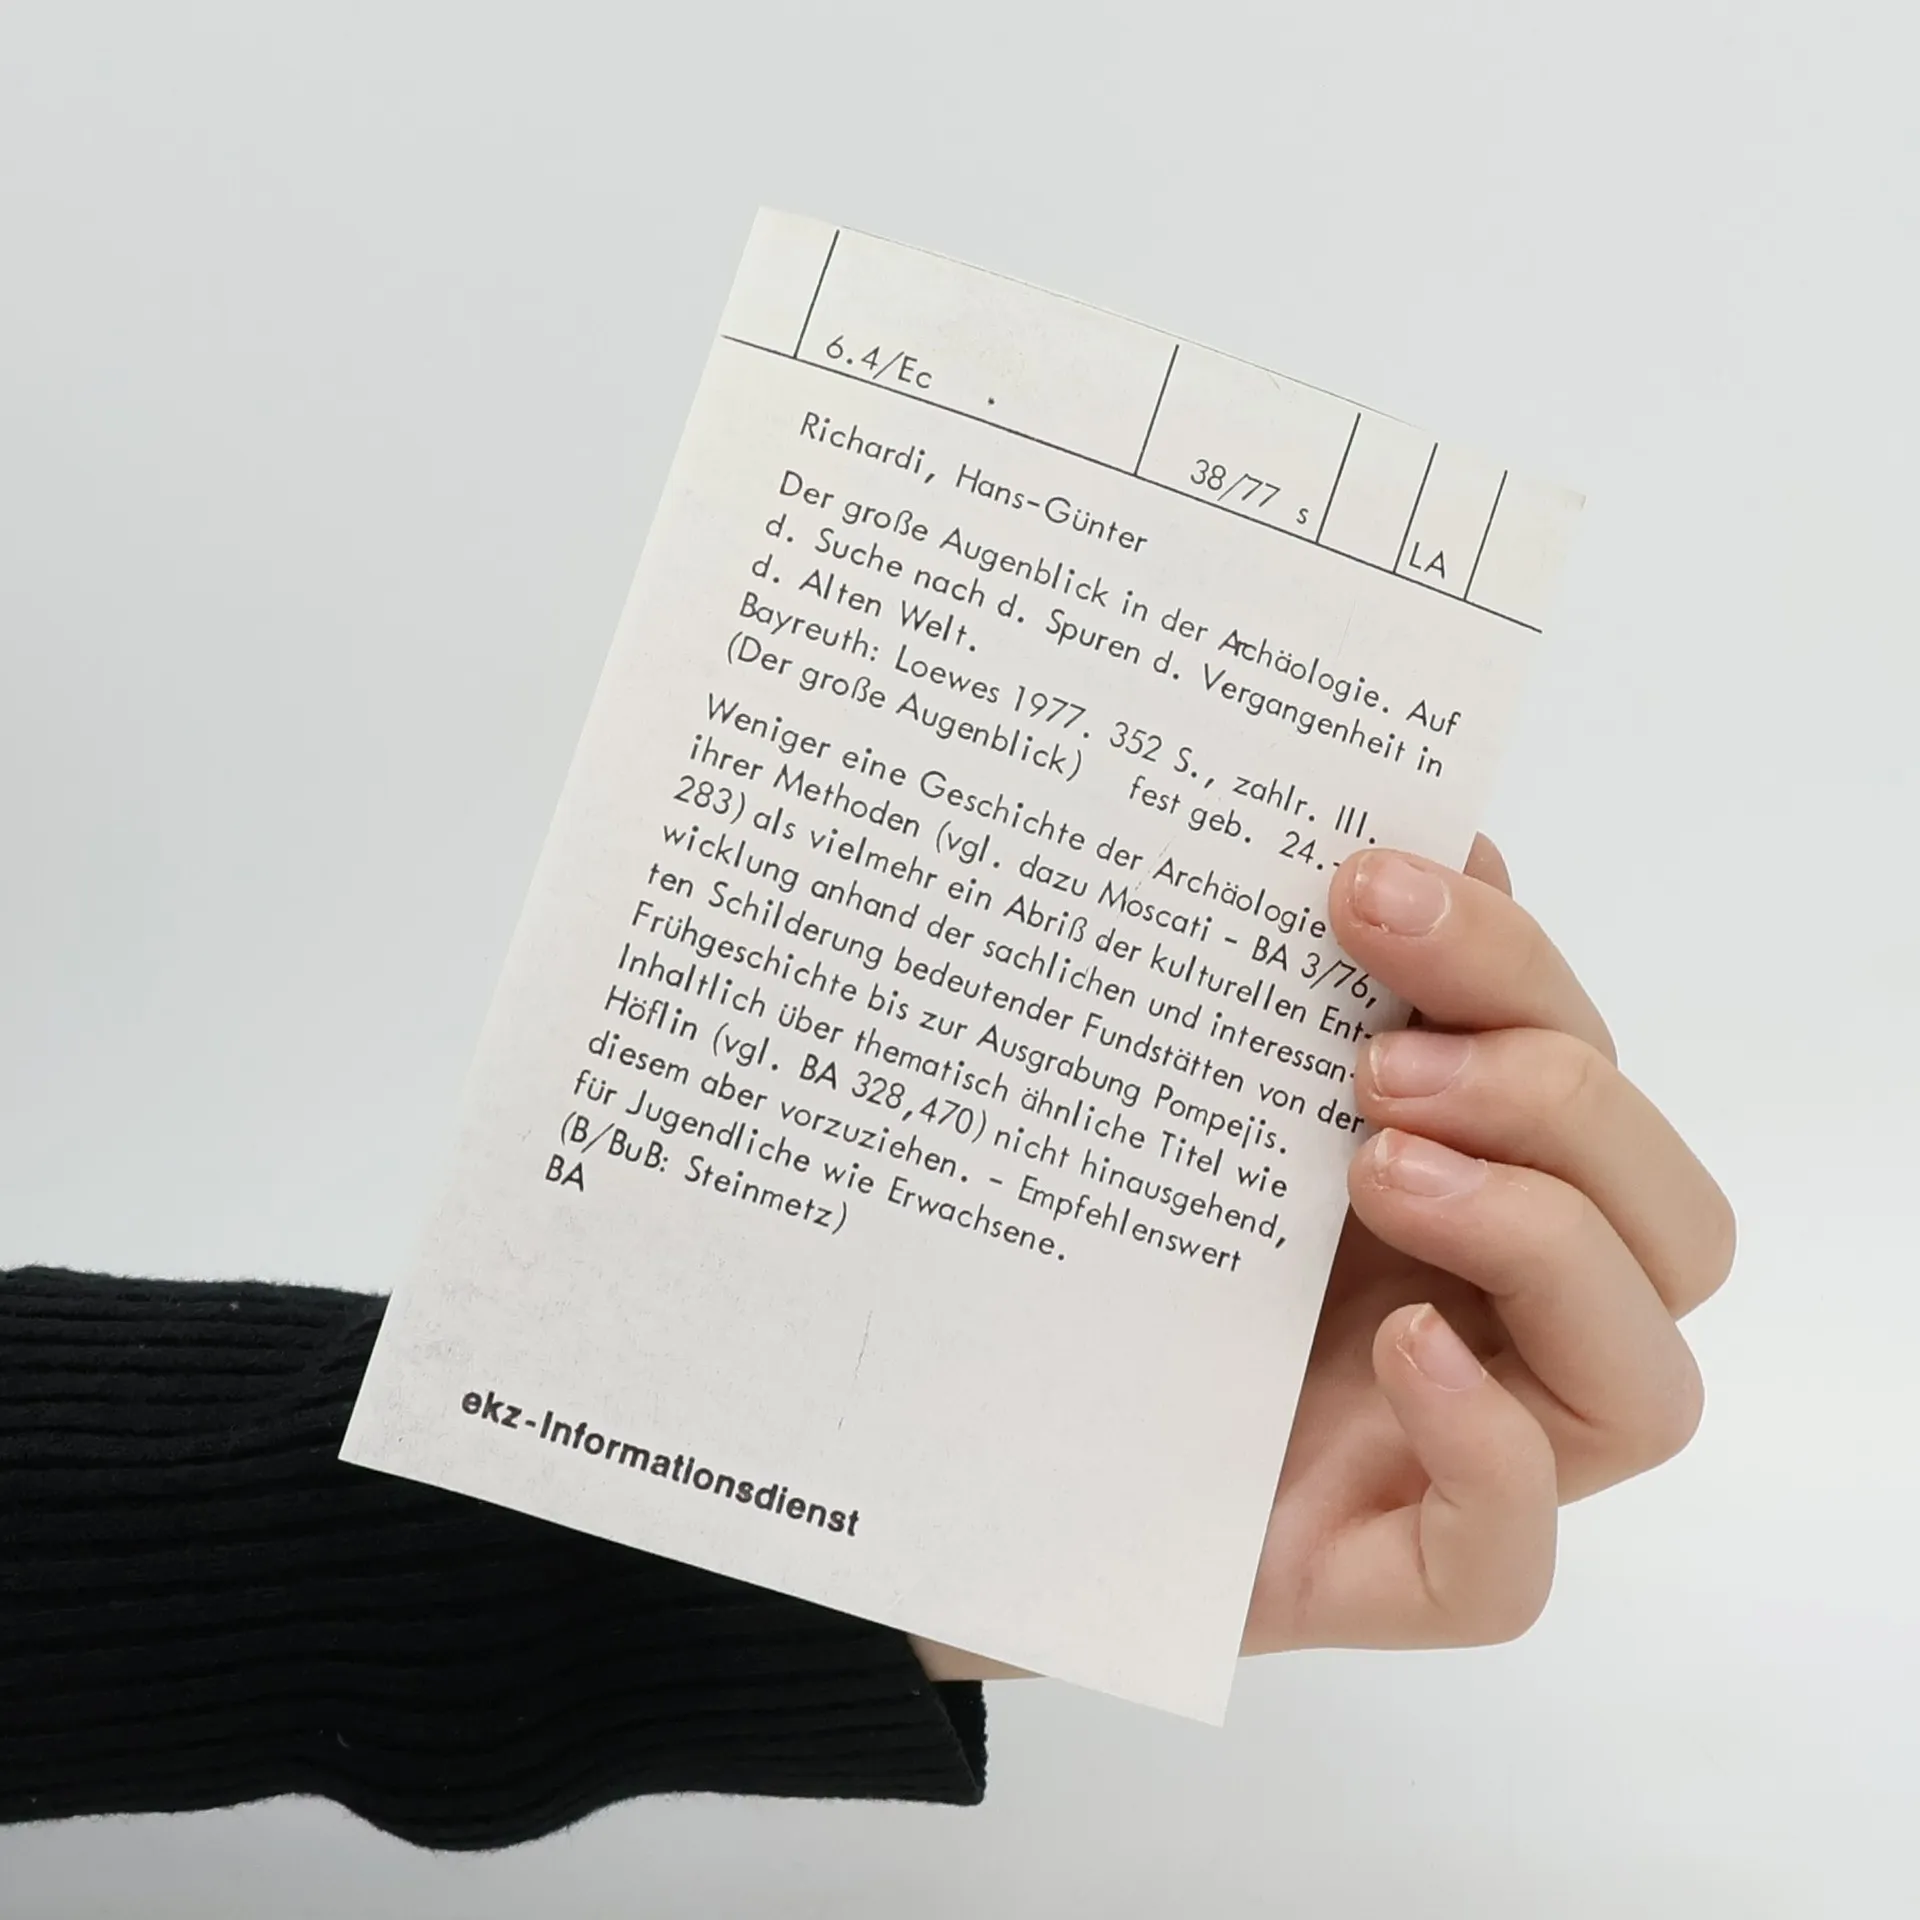 6.4/Ec
38/77 s
LA
Richardi, Hans-Günter
Der große Augenblick in der Archäologie. Auf
d. Suche nach d. Spuren d. Vergangenheit in
d. Alten Welt.
Bayreuth: Loewes 1977. 352 S., zahlr. Ill.
(Der große Augenblick) fest geb. 24.-
Weniger eine Geschichte der Archäologie
ihrer Methoden (vgl. dazu Moscati - BA 3/76,
283) als vielmehr ein Abriß der kulturellen Ent-
wicklung anhand der sachlichen und interessan-
ten Schilderung bedeutender Fundstätten von der
Frühgeschichte bis zur Ausgrabung Pompejis.
Inhaltlich über thematisch ähnliche Titel wie
Höflin (vgl. BA 328,470) nicht hinausgehend,
diesem aber vorzuziehen. - Empfehlenswert
für Jugendliche wie Erwachsene.
(B/BuB: Steinmetz)
BA
ekz-Informationsdienst